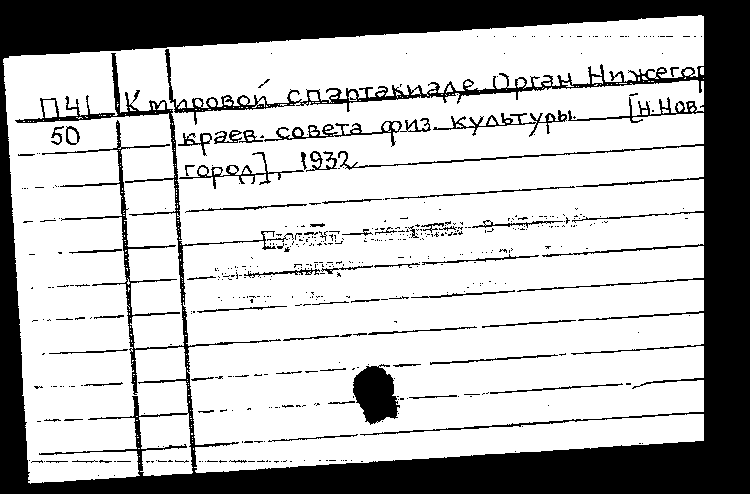 П41 К мировой спартакиаде Орган Нижегор
50 краев. совета физ. культуры [Н.Нов-
город], 1932